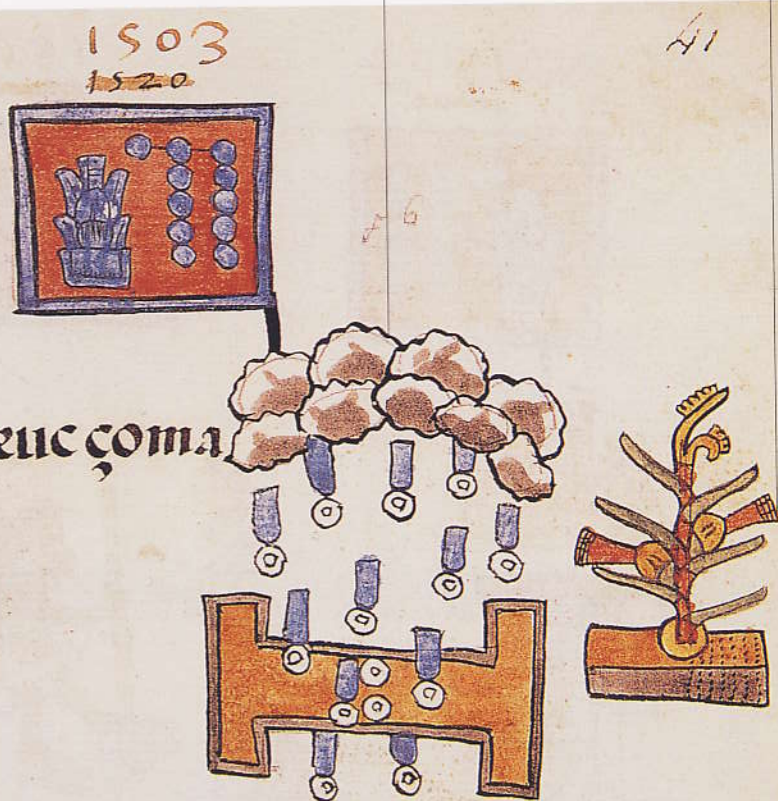 1503
1520
41
6
çoma